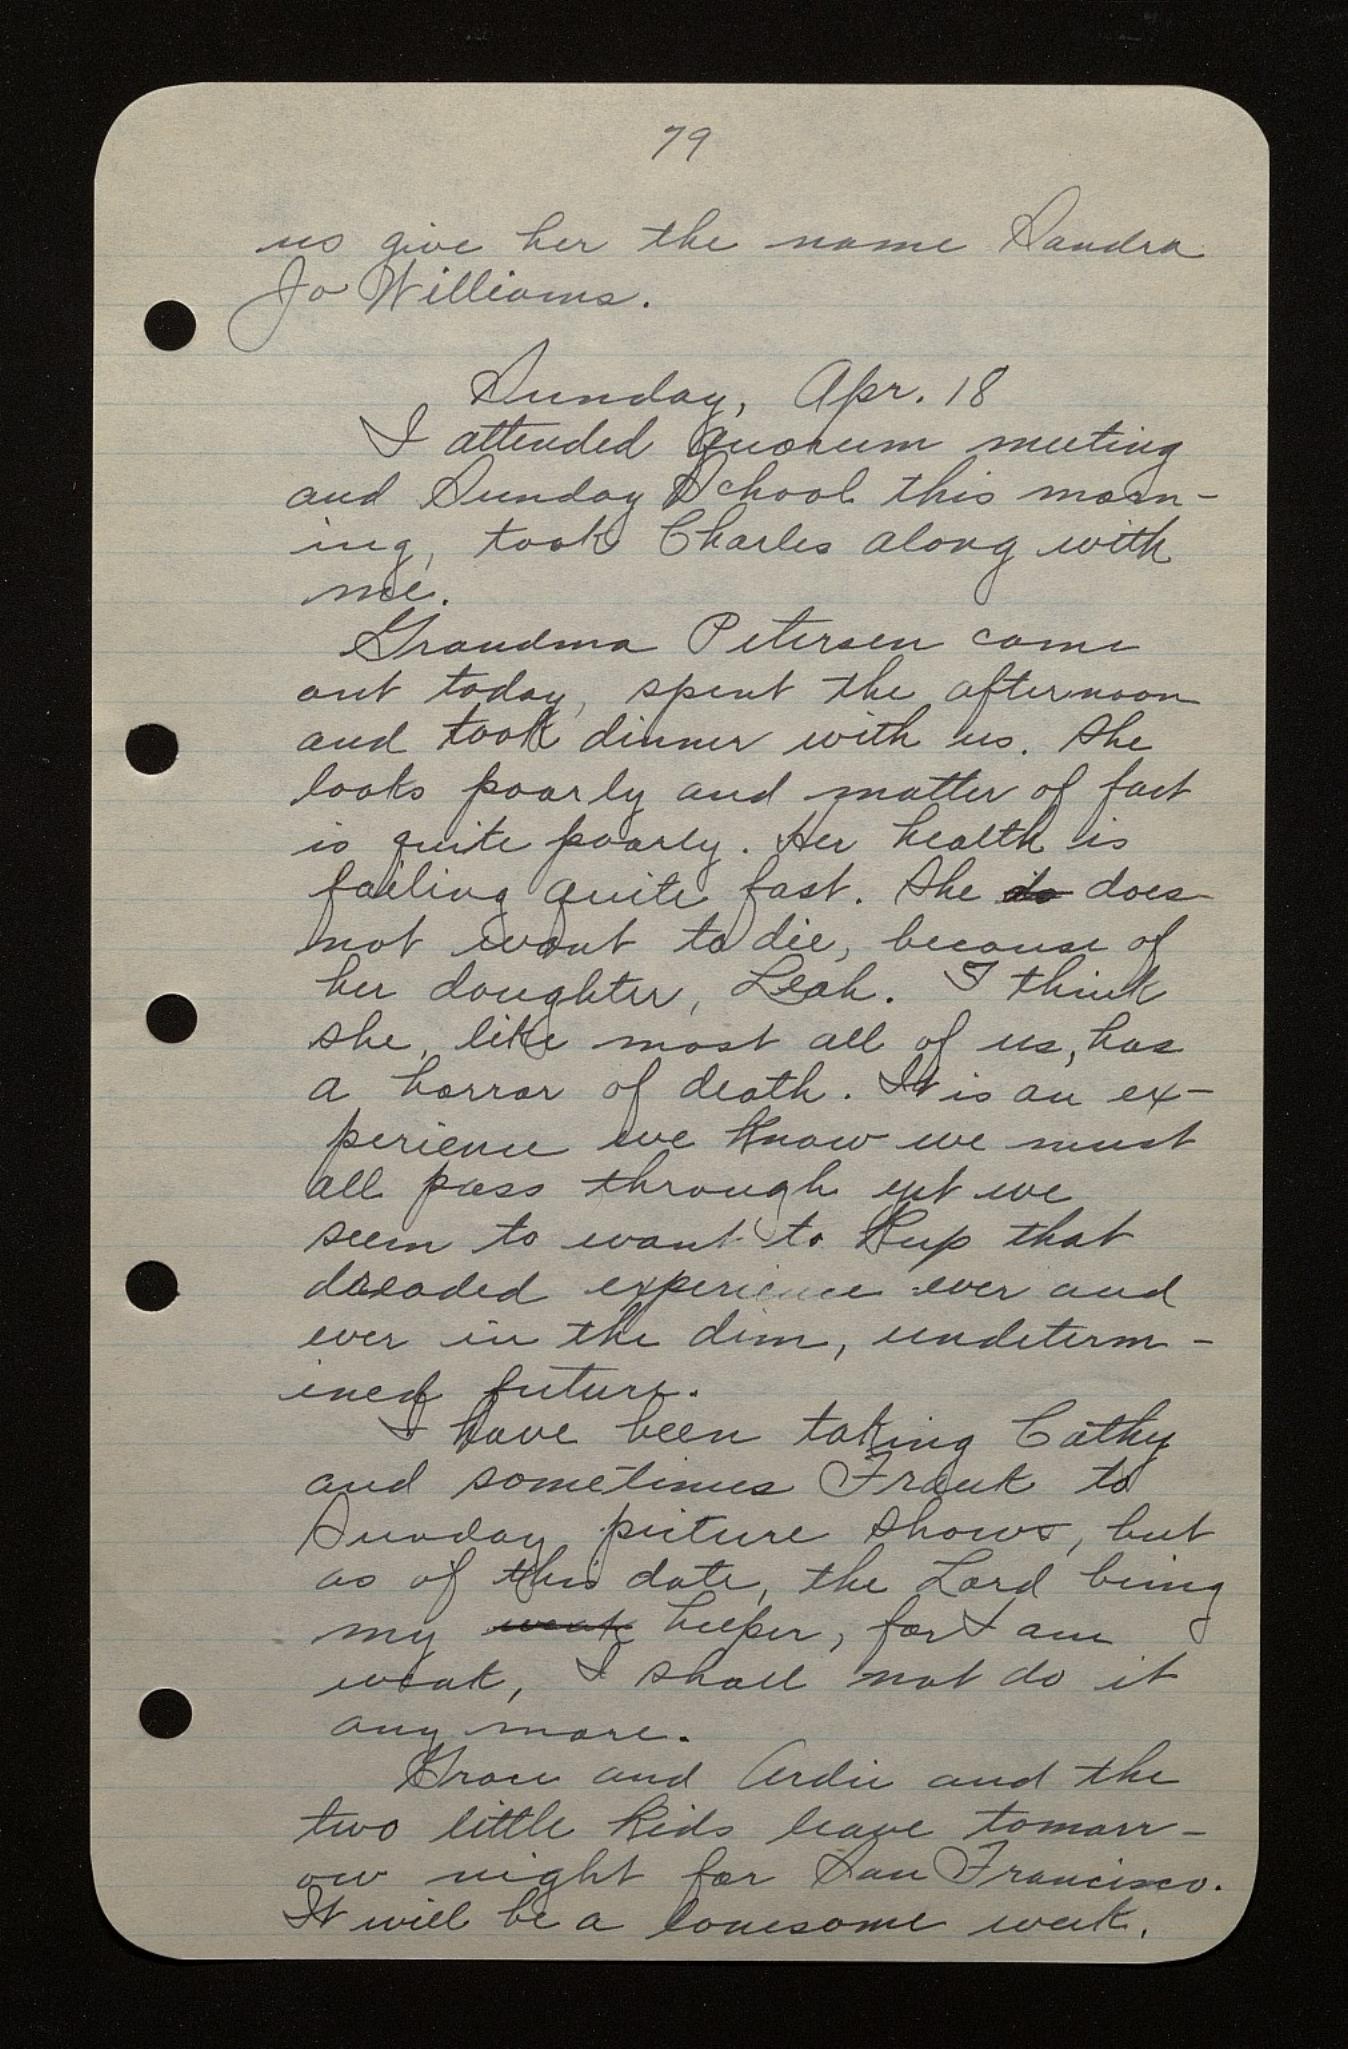 79
us give her the name Sandra
Jo Williams.
Sunday, Apr. 18
I attended quorum meeting
and Sunday School this morn-
ing, took Charles along with
me.
Grandma Petersen came
out today, spent the afternoon
and took dinner with us. She
looks poorly and matter of fact
is quite poorly. Her health is
failing quite fast. She do does
not want to die, because of
her daughter, Leah. I think
she, like most all of us, has
a horror of death. It is an ex-
perience we know we must
all pass through yet we
seem to want to keep that
dreaded experience ever and
ever in the dim, undeterm-
ined future.
I have been taking Cathy
and sometimes Frank to
Sunday picture shows, but
as of this date, the Lord being
my weak helper, for I am
weak, I shall not do it
any more.
Grace and Ardie and the
two little kids leave tomorr-
ow night for San Francisco.
It will be a lonesome week.